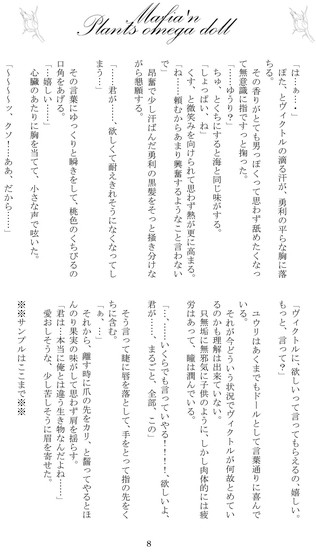 Mafia'n
Plants omega doll
「は…ぁ…、」
ぽた、とヴィクトルの滴る汗が、勇利の平らな胸に落
ちる。
その香りがとても男っぽくって思わず舐めたくなっ
て無意識に指ですっと掬った。
「……ゆうり？」
ちゅ、とくちにすると海と同じ味がする。
「しょっぱい、ね」
くす、と微笑みを向けられて思わず熱が更に高まる。
「ね……頼むからあまり興奮するようなこと言わない
で」
昂奮で少し汗ばんだ勇利の黒髪をそっと掻き分けな
がら懇願する。
「……君が……、欲しくて耐えきれそうになくなってし
まう…」
その言葉にゆっくりと瞬きをして、桃色のくちびるの
口角をあげる。
「…嬉しい……」
心臓のあたりに胸を当てて、小さな声で呟いた。
「～～～～ッ、クソ！…ああ、だから……」
「ヴィクトルに、欲しいって言ってもらえるの、嬉しい。
もっと、言って？」
ユウリはあくまでもドールとして言葉通りに喜んで
いる。
それが今どういう状況でヴィクトルが何故とめてい
るのかも理解は出来ていない。
只無垢に無邪気に子供のように、しかし肉体的には疲
労はあって、瞳は潤んでいる。
「、……いくらでも言っていやる！！！！、欲しいよ、
君が……、まるごと、全部、この」
そう言って睫に唇を落として、手をとって指の先をく
ちに含む。
「ぁ、…」
それから、離す時に爪の先をカリ、と齧ってやるとほ
んのり果実の味がして思わず肩を揺らす。
「君は…本当に俺とは違う生き物なんだよね……」
愛おしそうな、少し苦しそうに眉を寄せた。
※※サンプルはここまで※※
8